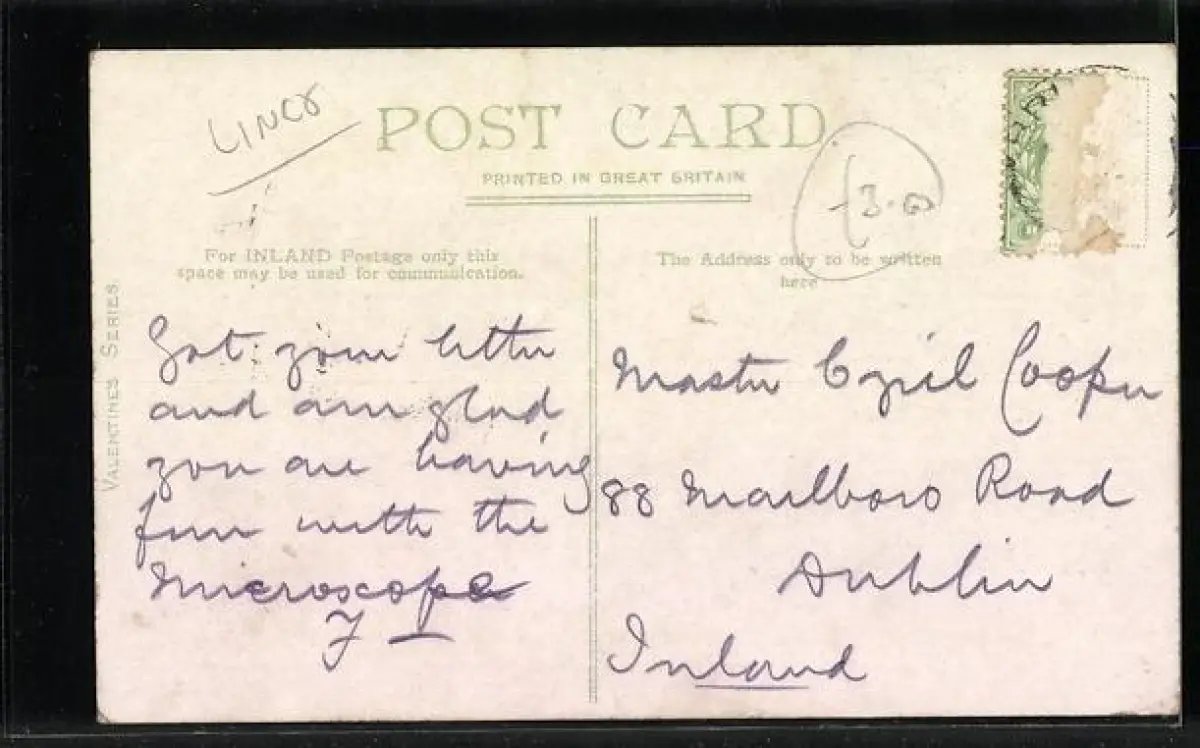 LINCS
POST CARD
PRINTED IN GREAT BRITAIN
3.00
For INLAND Postage only this
space may be used for communication.
The Address only to be written
here
VALENTINES SERIES
Got your letter
and am glad
you are having
fun with the
Microscope
F
Master Cyril Cooper
88 Marlboro Road
Dublin
Inland